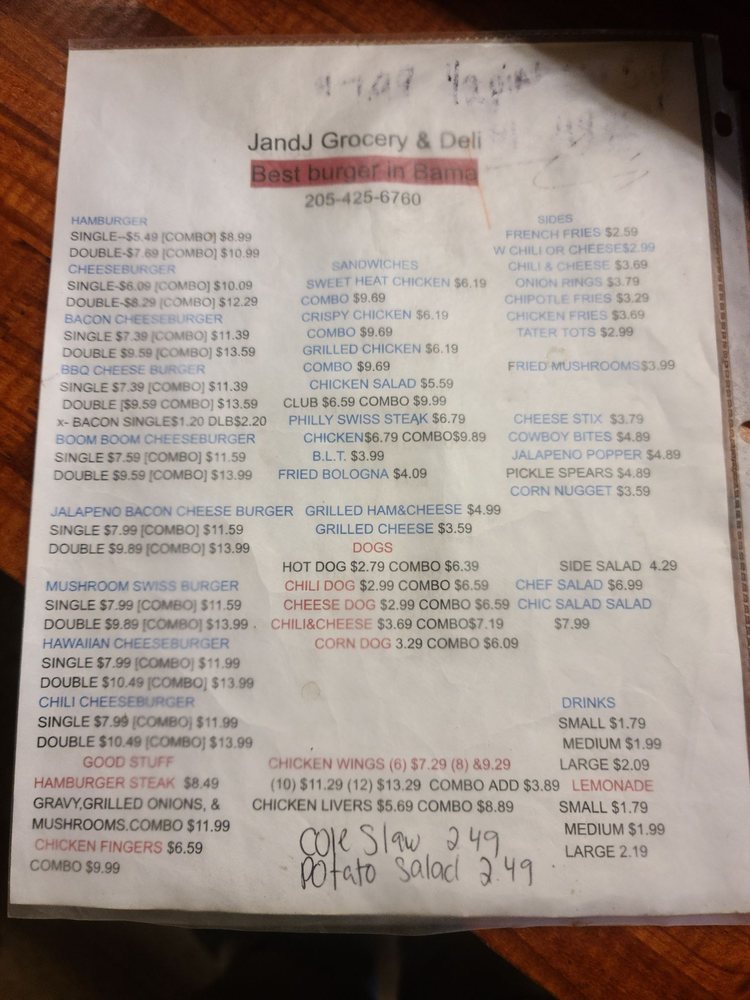 JandJ Grocery & Deli
Best burger in Bama
205-425-6760
HAMBURGER
SINGLE--$5.49 [COMBO] $8.99
DOUBLE-$7.69 [COMBO] $10.99
CHEESEBURGER
SINGLE-$6.09 [COMBO] $10.09
DOUBLE-$8.29 [COMBO] $12.29
BACON CHEESEBURGER
SINGLE $7.39 [COMBO] $11.39
DOUBLE $9.59 [COMBO] $13.59
BBQ CHEESE BURGER
SINGLE $7.39 [COMBO] $11.39
DOUBLE [$9.59 COMBO] $13.59
x- BACON SINGLE$1.20 DLB$2.20
BOOM BOOM CHEESEBURGER
SINGLE $7.59 [COMBO] $11.59
DOUBLE $9.59 [COMBO] $13.99
JALAPENO BACON CHEESE BURGER
SINGLE $7.99 [COMBO] $11.59
DOUBLE $9.89 [COMBO] $13.99
MUSHROOM SWISS BURGER
SINGLE $7.99 [COMBO] $11.59
DOUBLE $9.89 [COMBO] $13.99
HAWAIIAN CHEESEBURGER
SINGLE $7.99 [COMBO] $11.99
DOUBLE $10.49 [COMBO] $13.99
CHILI CHEESEBURGER
SINGLE $7.99 [COMBO] $11.99
DOUBLE $10.49 [COMBO] $13.99
GOOD STUFF
HAMBURGER STEAK $8.49
GRAVY,GRILLED ONIONS, &
MUSHROOMS.COMBO $11.99
CHICKEN FINGERS $6.59
COMBO $9.99
SANDWICHES
SWEET HEAT CHICKEN $6.19
COMBO $9.69
CRISPY CHICKEN $6.19
COMBO $9.69
GRILLED CHICKEN $6.19
COMBO $9.69
CHICKEN SALAD $5.59
CLUB $6.59 COMBO $9.99
PHILLY SWISS STEAK $6.79
CHICKEN$6.79 COMBO$9.89
B.L.T. $3.99
FRIED BOLOGNA $4.09
GRILLED HAM&CHEESE $4.99
GRILLED CHEESE $3.59
DOGS
HOT DOG $2.79 COMBO $6.39
CHILI DOG $2.99 COMBO $6.59
CHEESE DOG $2.99 COMBO $6.59
CHILI&CHEESE $3.69 COMBO$7.19
CORN DOG 3.29 COMBO $6.09
CHICKEN WINGS (6) $7.29 (8) &9.29
(10) $11.29 (12) $13.29 COMBO ADD $3.89
CHICKEN LIVERS $5.69 COMBO $8.89
Cole Slaw 2 49
Potato Salad 2.49
SIDES
FRENCH FRIES $2.59
W CHILI OR CHEESE$2.99
CHILI & CHEESE $3.69
ONION RINGS $3.79
CHIPOTLE FRIES $3.29
CHICKEN FRIES $3.69
TATER TOTS $2.99
FRIED MUSHROOMS$3.99
CHEESE STIX $3.79
COWBOY BITES $4.89
JALAPENO POPPER $4.89
PICKLE SPEARS $4.89
CORN NUGGET $3.59
SIDE SALAD 4.29
CHEF SALAD $6.99
CHIC SALAD SALAD
$7.99
DRINKS
SMALL $1.79
MEDIUM $1.99
LARGE $2.09
LEMONADE
SMALL $1.79
MEDIUM $1.99
LARGE 2.19